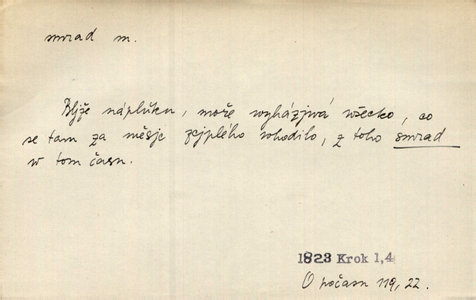 smrad m.
Bljže náplůku, može wyházjwá wšecko, co
se tam za měsje zejplého whodilo, z toho smrad
w tom času.
1823 Krok 1,4
O počasu 119, 22.